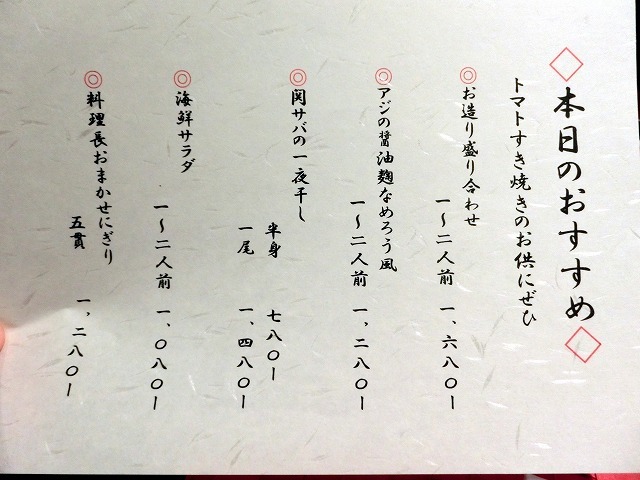 ◇本日のおすすめ◇
トマトすき焼きのお供にぜひ
◎お造り盛り合わせ
一〜二人前 一、六八〇ー
◎アジの醤油麹なめろう風
一〜二人前 一、二八〇ー
◎関サバの一夜干し
半身 七八〇ー
一尾 一、四八〇ー
◎海鮮サラダ
一〜二人前 一、〇八〇ー
◎料理長おまかせにぎり
五貫 一、二八〇ー